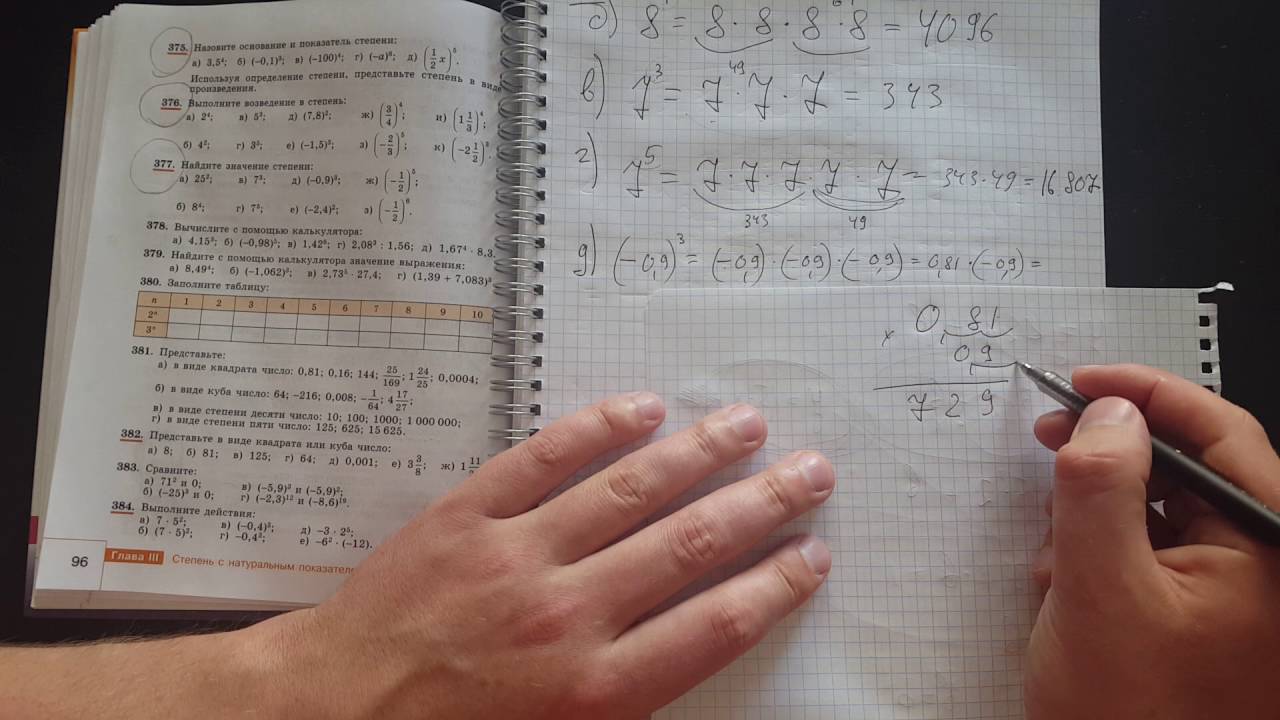 375. Назовите основание и показатель степени:
а) 3,5⁴; б) (−0,1)³; в) (−100)⁴; г) (−a)⁶; д) (1/2 x)⁵.
Используя определение степени, представьте степень в виде
произведения.
376. Выполните возведение в степень:
а) 2⁴; в) 5³; д) (7,8)²; ж) (3/4)⁴; и) (1 1/3)⁴;
б) 4²; г) 3⁵; е) (−1,5)³; з) (−2/3)⁵; к) (−2 1/2)³.
377. Найдите значение степени:
а) 25²; в) 7³; д) (−0,9)³; ж) (−1/2)⁵;
б) 8⁴; г) 7⁵; е) (−2,4)²; з) (−1/2)⁶.
378. Вычислите с помощью калькулятора:
а) 4,15³; б) (−0,98)⁵; в) 1,42⁸; г) 2,08³ : 1,56; д) 1,67⁴ · 8,3.
379. Найдите с помощью калькулятора значение выражения:
а) 8,49⁴; б) (−1,062)²; в) 2,73⁵ · 27,4; г) (1,39 + 7,083)³
380. Заполните таблицу:
n 1 2 3 4 5 6 7 8 9 10
2ⁿ
3ⁿ
381. Представьте:
а) в виде квадрата число: 0,81; 0,16; 144; 25/169; 1 24/25; 0,0004;
б) в виде куба число: 64; −216; 0,008; −1/64; 4 17/27;
в) в виде степени десяти число: 10; 100; 1000; 1 000 000;
г) в виде степени пяти число: 125; 625; 15 625.
382. Представьте в виде квадрата или куба число:
а) 8; б) 81; в) 125; г) 64; д) 0,001; е) 3 3/8; ж) 1 11/
383. Сравните:
а) 71² и 0; в) (−5,9)³ и (−5,9)²;
б) (−25)³ и 0; г) (−2,3)¹² и (−8,6)¹⁹.
384. Выполните действия:
а) 7 · 5²; в) (−0,4)³; д) −3 · 2⁵;
б) (7 · 5)²; г) −0,4³; е) −6² · (−12).
96 Глава III Степень с натуральным показателе
б) 8 = 8 · 8 · 8 · 8 = 4096
в) 7³ = 7 · 7 · 7 = 343
49
г) 7⁵ = 7 · 7 · 7 · 7 · 7 = 343 · 49 = 16 807
343 49
д) (−0,9)³ = (−0,9) · (−0,9) · (−0,9) = 0,81 · (−0,9) =
0,81
×
0,9
729